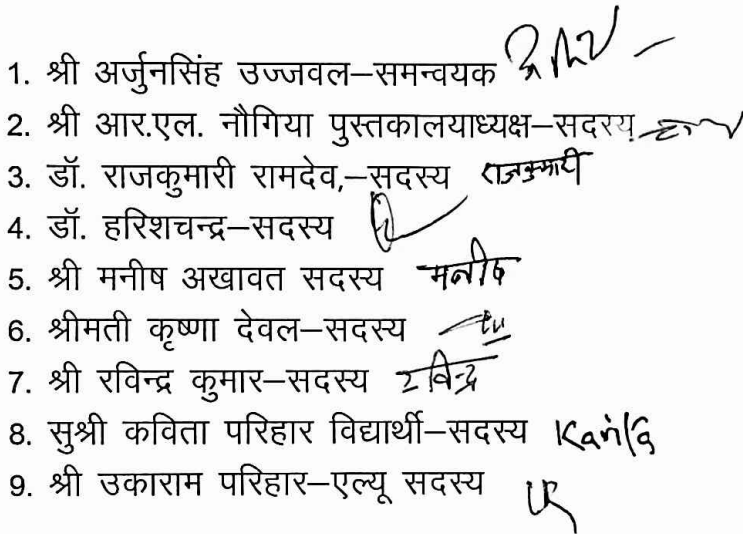 1. श्री अर्जुनसिंह उज्जवल–समन्वयक
2. श्री आर.एल. नौगिया पुस्तकालयाध्यक्ष–सदस्य
3. डॉ. राजकुमारी रामदेव,–सदस्य राजकुमारी
4. डॉ. हरिशचन्द्र–सदस्य
5. श्री मनीष अखावत सदस्य मनीष
6. श्रीमती कृष्णा देवल–सदस्य
7. श्री रविन्द्र कुमार–सदस्य रविन्द्र
8. सुश्री कविता परिहार विद्यार्थी–सदस्य
9. श्री उकाराम परिहार–एल्यू सदस्य